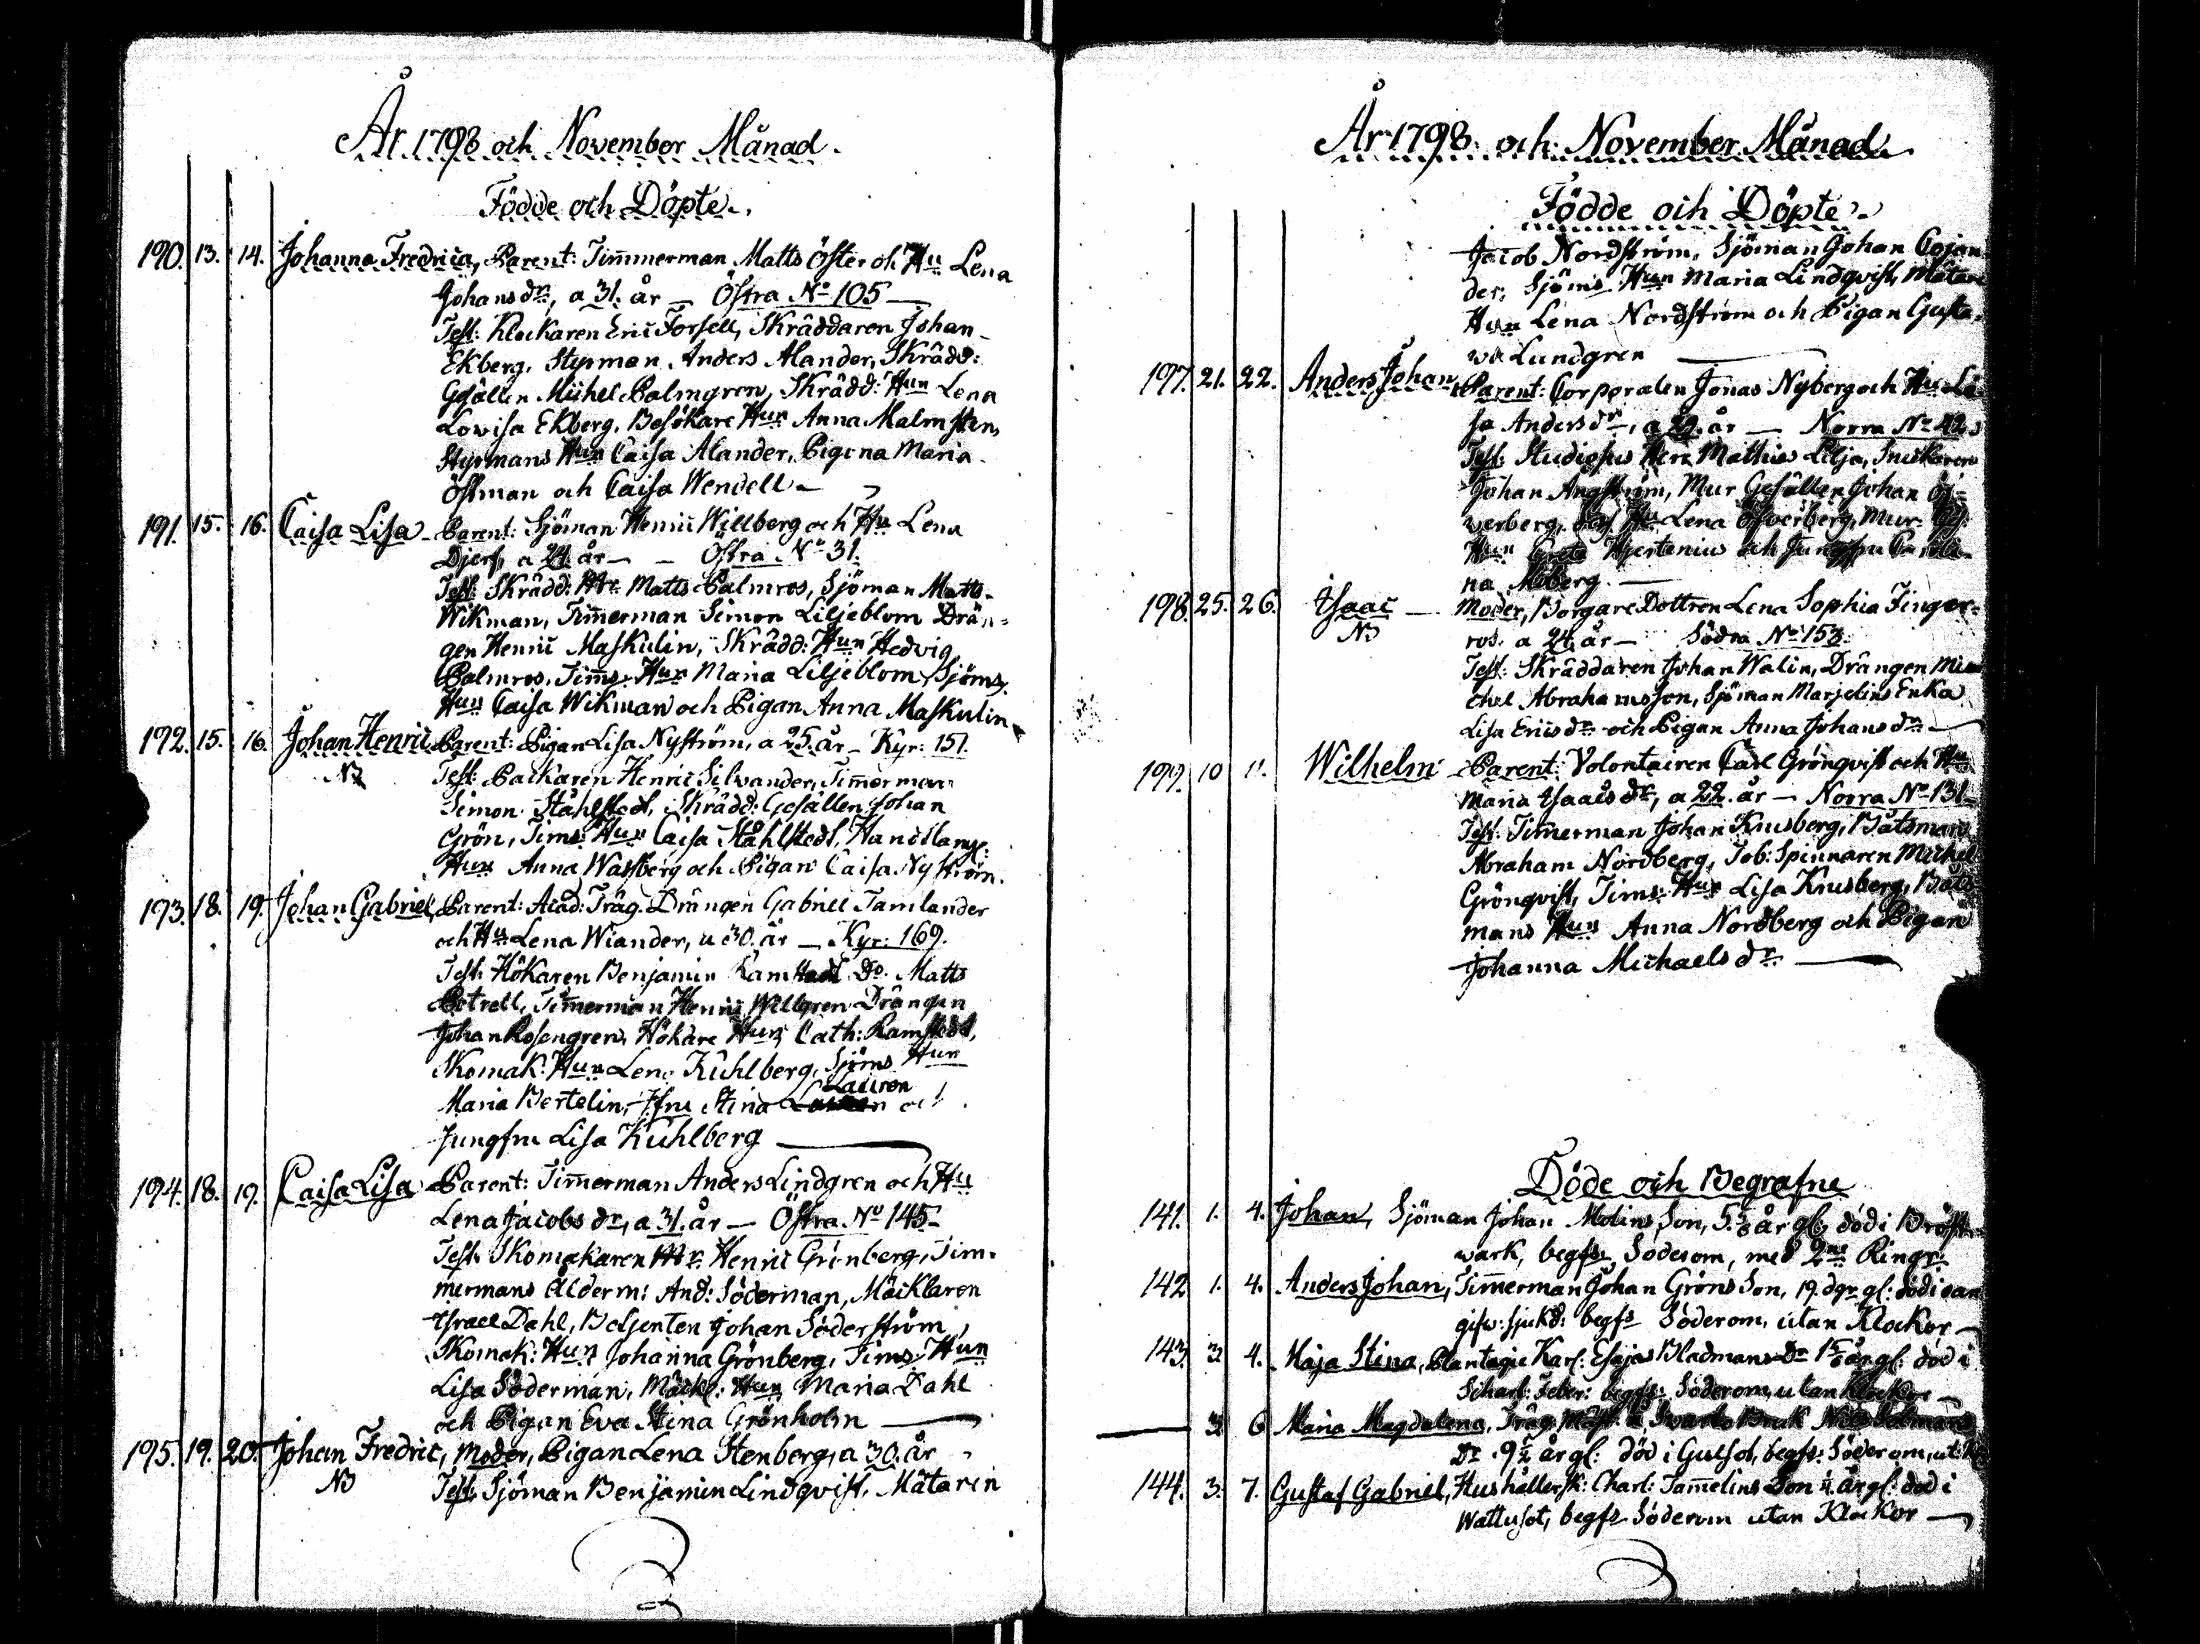 År 1798 och November Månad.
Födde och Döpte.
190. 13. 14. Johanna Fredrica, Parent: Timmerman Matts Öster och Hu Lena
Johansdr, a 31. år — Östra No 105 —
Test: Klockaren Eric Forsell, Skräddaren Johan
Ekberg, Styrman Anders Alander, Skrädd:
Gesällen Michel Palmgren, Skrädd: Hun Lena
Lovisa Ekberg, Besökare Hun Anna Malmsten,
Styrmans Hun Caisa Alander, Pigorna Maria
Östman och Caisa Wendell —
191. 15. 16. Caisa Lisa — Parent: Sjöman Henric Willberg och Hu Lena
Djerf, a 24. år — Östra No 31.
Test: Skrädd: Mr Matts Palmros, Sjöman Matts
Wikman, Timmerman Simon Liljeblom Drän-
gen Henric Maskulin, Skrädd: Hun Hedvig
Palmros, Tims: Hun Maria Liljeblom, Sjöms.
Hun Caisa Wikman och Pigan Anna Maskulin
192. 15. 16. Johan Henric Parent: Pigan Lisa Nyström, a 25. år — Kyr: 151.
NB Test: Backaren Henric Silvander, Timmerman
Simon Ståhlstedt, Skrädd: Gesällen Johan
Grön, Tims: Hun Caisa Ståhlstedt, Handtlang:
Hun Anna Wassberg och Pigan Caisa Nyström.
193. 18. 19. Johan Gabriel, Parent: Acad: Träg. Drängen Gabriel Tamlander
och Hu Lena Wiander, a 30. år — Kyr: 169.
Test: Hökaren Benjamin Ramstedt Do Matts
Petrell, Timmerman Henric Willgren Drängen
Johan Rosengren, Hökare Hun Cath: Ramstedt,
Skomak: Hun Lena Kühlberg, Sjöms Hun
Maria Bertelin, Jfru Stina Lauren och
Jungfru Lisa Kühlberg —
194. 18. 19. Caisa Lisa Parent: Timmerman Anders Lindgren och Hu
Lena Jacobsdr, a 31. år — Östra No 145 —
Test: Skomakaren Mr Henric Grönberg, Tim-
mermans Ålderm: And: Söderman, Mäcklaren
Israel Dahl, Betjenten Johan Söderström,
Skomak: Hun Johanna Grönberg, Tims: Hun
Lisa Söderman, Mäckl: Hun Maria Dahl
och Pigan Eva Stina Grönholm —
195. 19. 20. Johan Fredric, Moder, Pigan Lena Stenberg, a 30. år
NB Test: Sjöman Benjamin Lindqvist, Mätaren
År 1798 och November Månad.
Födde och Döpte.
Jacob Nordström, Sjöman Johan Cajan
der, Sjöms Hun Maria Lindqvist, Mätare
Hun Lena Nordström och Pigan Gusta-
va Lundgren —
197. 21. 22. Anders Johan, Parent: Corporalen Jonas Nyberg och Hu Li-
sa Andersdr, a 29. år — Norra No 42.
Test: Studiosus Herr Mathias Lilja, Snickaren
Johan Angström, Mur Gesällen Johan Öf-
verberg, Hu Lena Öfverberg, Mur: Ges:
Hun Greta Hjertenius och Jungfru Caroli-
na Moberg. —
198. 25. 26. Isaac — Moder, Borgare Dottren Lena Sophia Finger-
NB ros, a 24. år — Södra No 153.
Test: Skräddaren Johan Walin, Drängen Mi
chel Abrahamsson, Sjöman Marjelins Enka
Lisa Ericsdr och Pigan Anna Johansdr —
199. 10 11. Wilhelm Parent: Volontairen Carl Grönqvist och Hu
Maria Isaacsdr, a 22. år — Norra No 131 —
Test: Timmerman Johan Knusberg, Båtsman
Abraham Nordberg, Tob: Spinnaren Michel
Grönqvist, Tims: Hun Lisa Knusberg, Båts
mans Hun Anna Nordberg och Pigan
Johanna Michaelsdr. —
Döde och Begrafne
141. 1. 4. Johan, Sjöman Johan Molins Son, 5. år gl: död i Bröst-
wärk, begfs: Söderom, med 2ne Ringr:
142 1. 4. Anders Johan, Timmerman Johan Gröns Son, 19. dgr gl: död i oan
gifv: sjukd: begfs Söderom, utan Klockor —
143. 3 4. Maja Stina, Plantagie Karl: Esajas Bladmans Dr år gl: död i
Scharl: Feber: begfs: Söderom, utan Klockor —
— 3 6 Maria Magdalena, Träg: Mäst:
Dr 9½ år gl: död i Gulsot, begfs: Söderom, ut:
144. 3. 7. Gustaf Gabriel, Hushållersk: Charl: Tammelins Son ¼ år gl: död i
Wattusot, begfs Söderom utan Klockor —